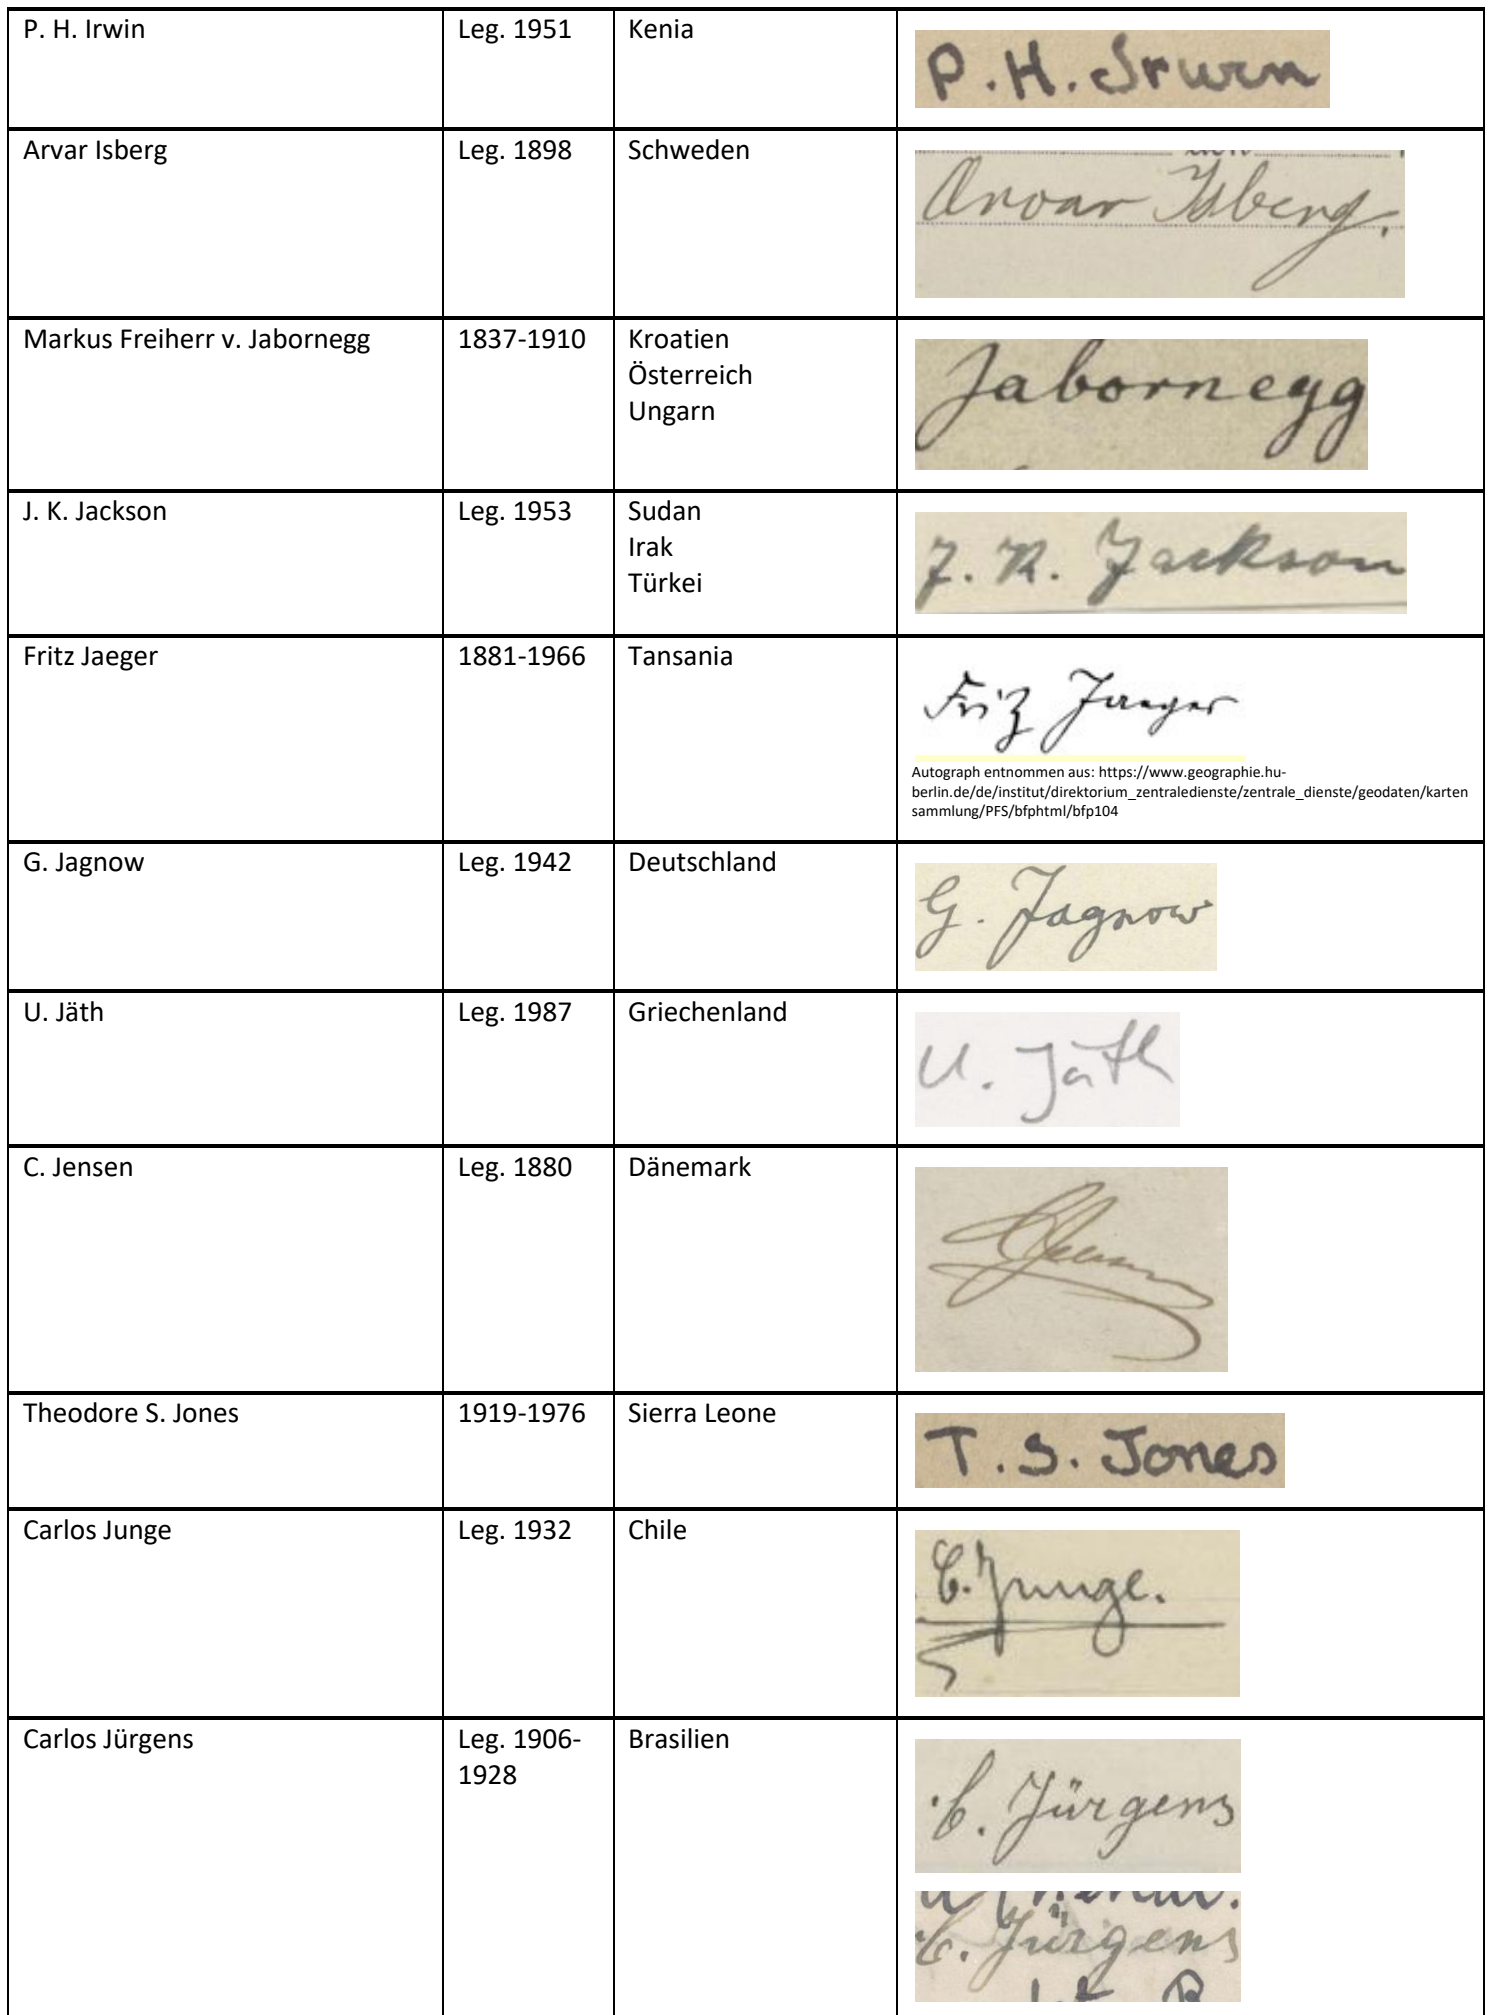 P. H. Irwin Leg. 1951 Kenia P. H. Irwin
Arvar Isberg Leg. 1898 Schweden Arvar Isberg.
Markus Freiherr v. Jabornegg 1837-1910 Kroatien Jabornegg
Österreich
Ungarn
J. K. Jackson Leg. 1953 Sudan J. K. Jackson
Irak
Türkei
Fritz Jaeger 1881-1966 Tansania Fritz Jaeger
Autograph entnommen aus: https://www.geographie.hu-
berlin.de/de/institut/direktorium_zentraledienste/zentrale_dienste/geodaten/karten
sammlung/PFS/bfphtml/bfp104
G. Jagnow Leg. 1942 Deutschland G. Jagnow
U. Jäth Leg. 1987 Griechenland U. Jäth
C. Jensen Leg. 1880 Dänemark
Theodore S. Jones 1919-1976 Sierra Leone T. S. Jones
Carlos Junge Leg. 1932 Chile C. Junge.
Carlos Jürgens Leg. 1906- Brasilien C. Jürgens
1928
C. Jürgens